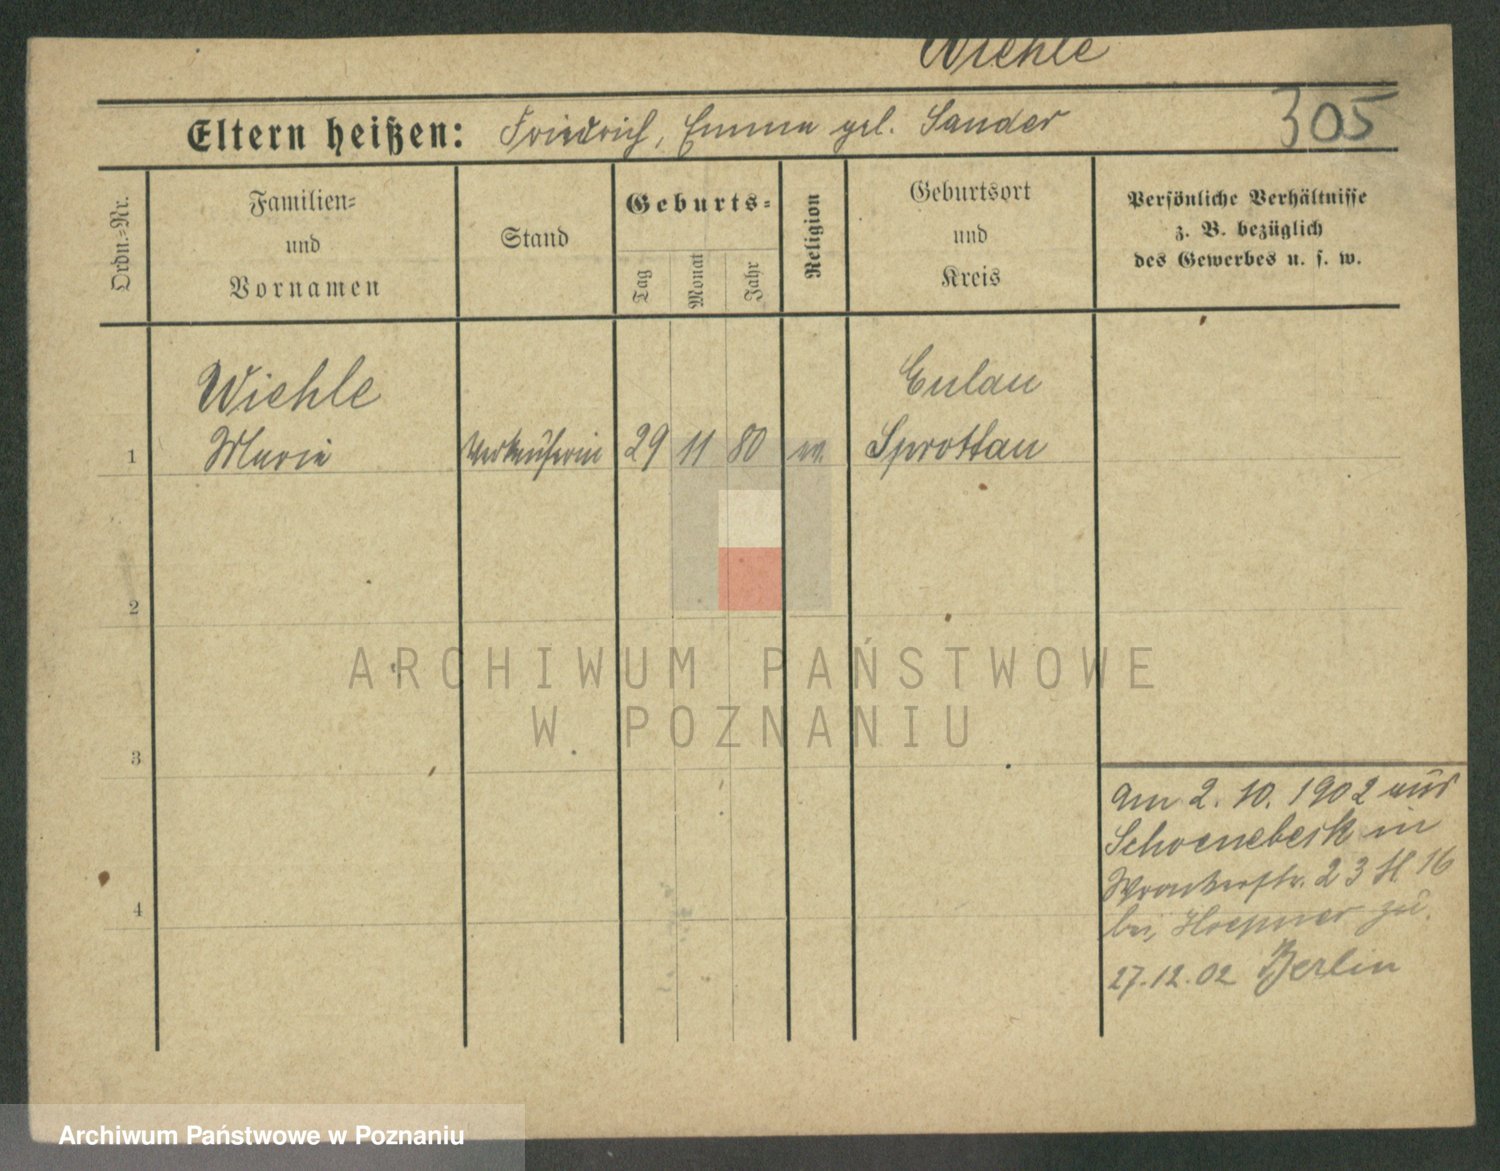 Wiehle
Eltern heißen: Friedrich, Emma geb. Sander
305
Ordn.-Nr.
Familien-
und
Vornamen
Stand
Geburts-
Tag
Monat
Jahr
Religion
Geburtsort
und
Kreis
Persönliche Verhältnisse
z. B. bezüglich
des Gewerbes u. s. w.
Wiehle
Eulau
1 Marie Verkäuferin 29 11 80 ev. Sprottau
2
ARCHIWUM PAŃSTWOWE
W POZNANIU
3
am 2. 10. 1902 aus
Schoenebeck in
Wronkerstr. 23 II 16
4
bei Hoepner zu.
27.12.02 Berlin
Archiwum Państwowe w Poznaniu